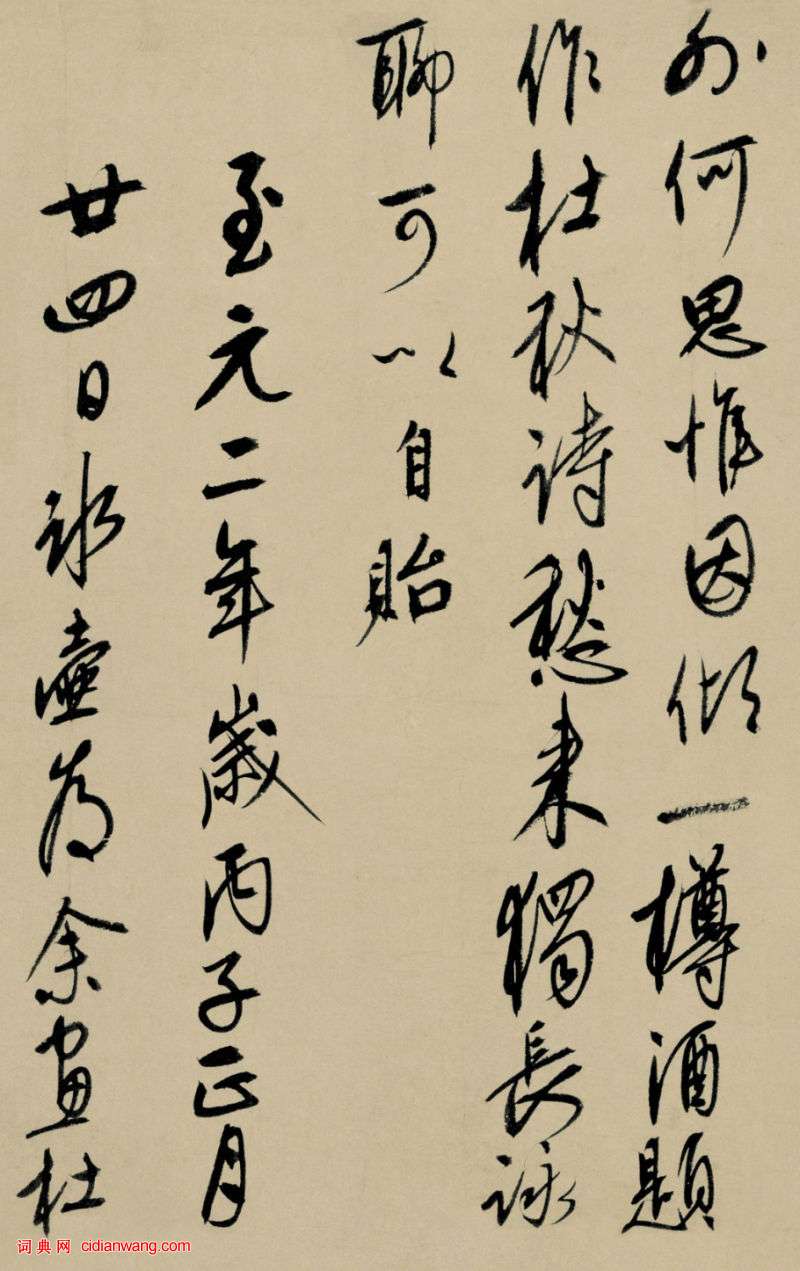 外何思惟因倾一樽酒題
作杜秋詩愁来獨長詠
聊可以自貽
至元二年歲丙子正月
廿四日冰壺为余畫杜
词典网 cidianwang.com